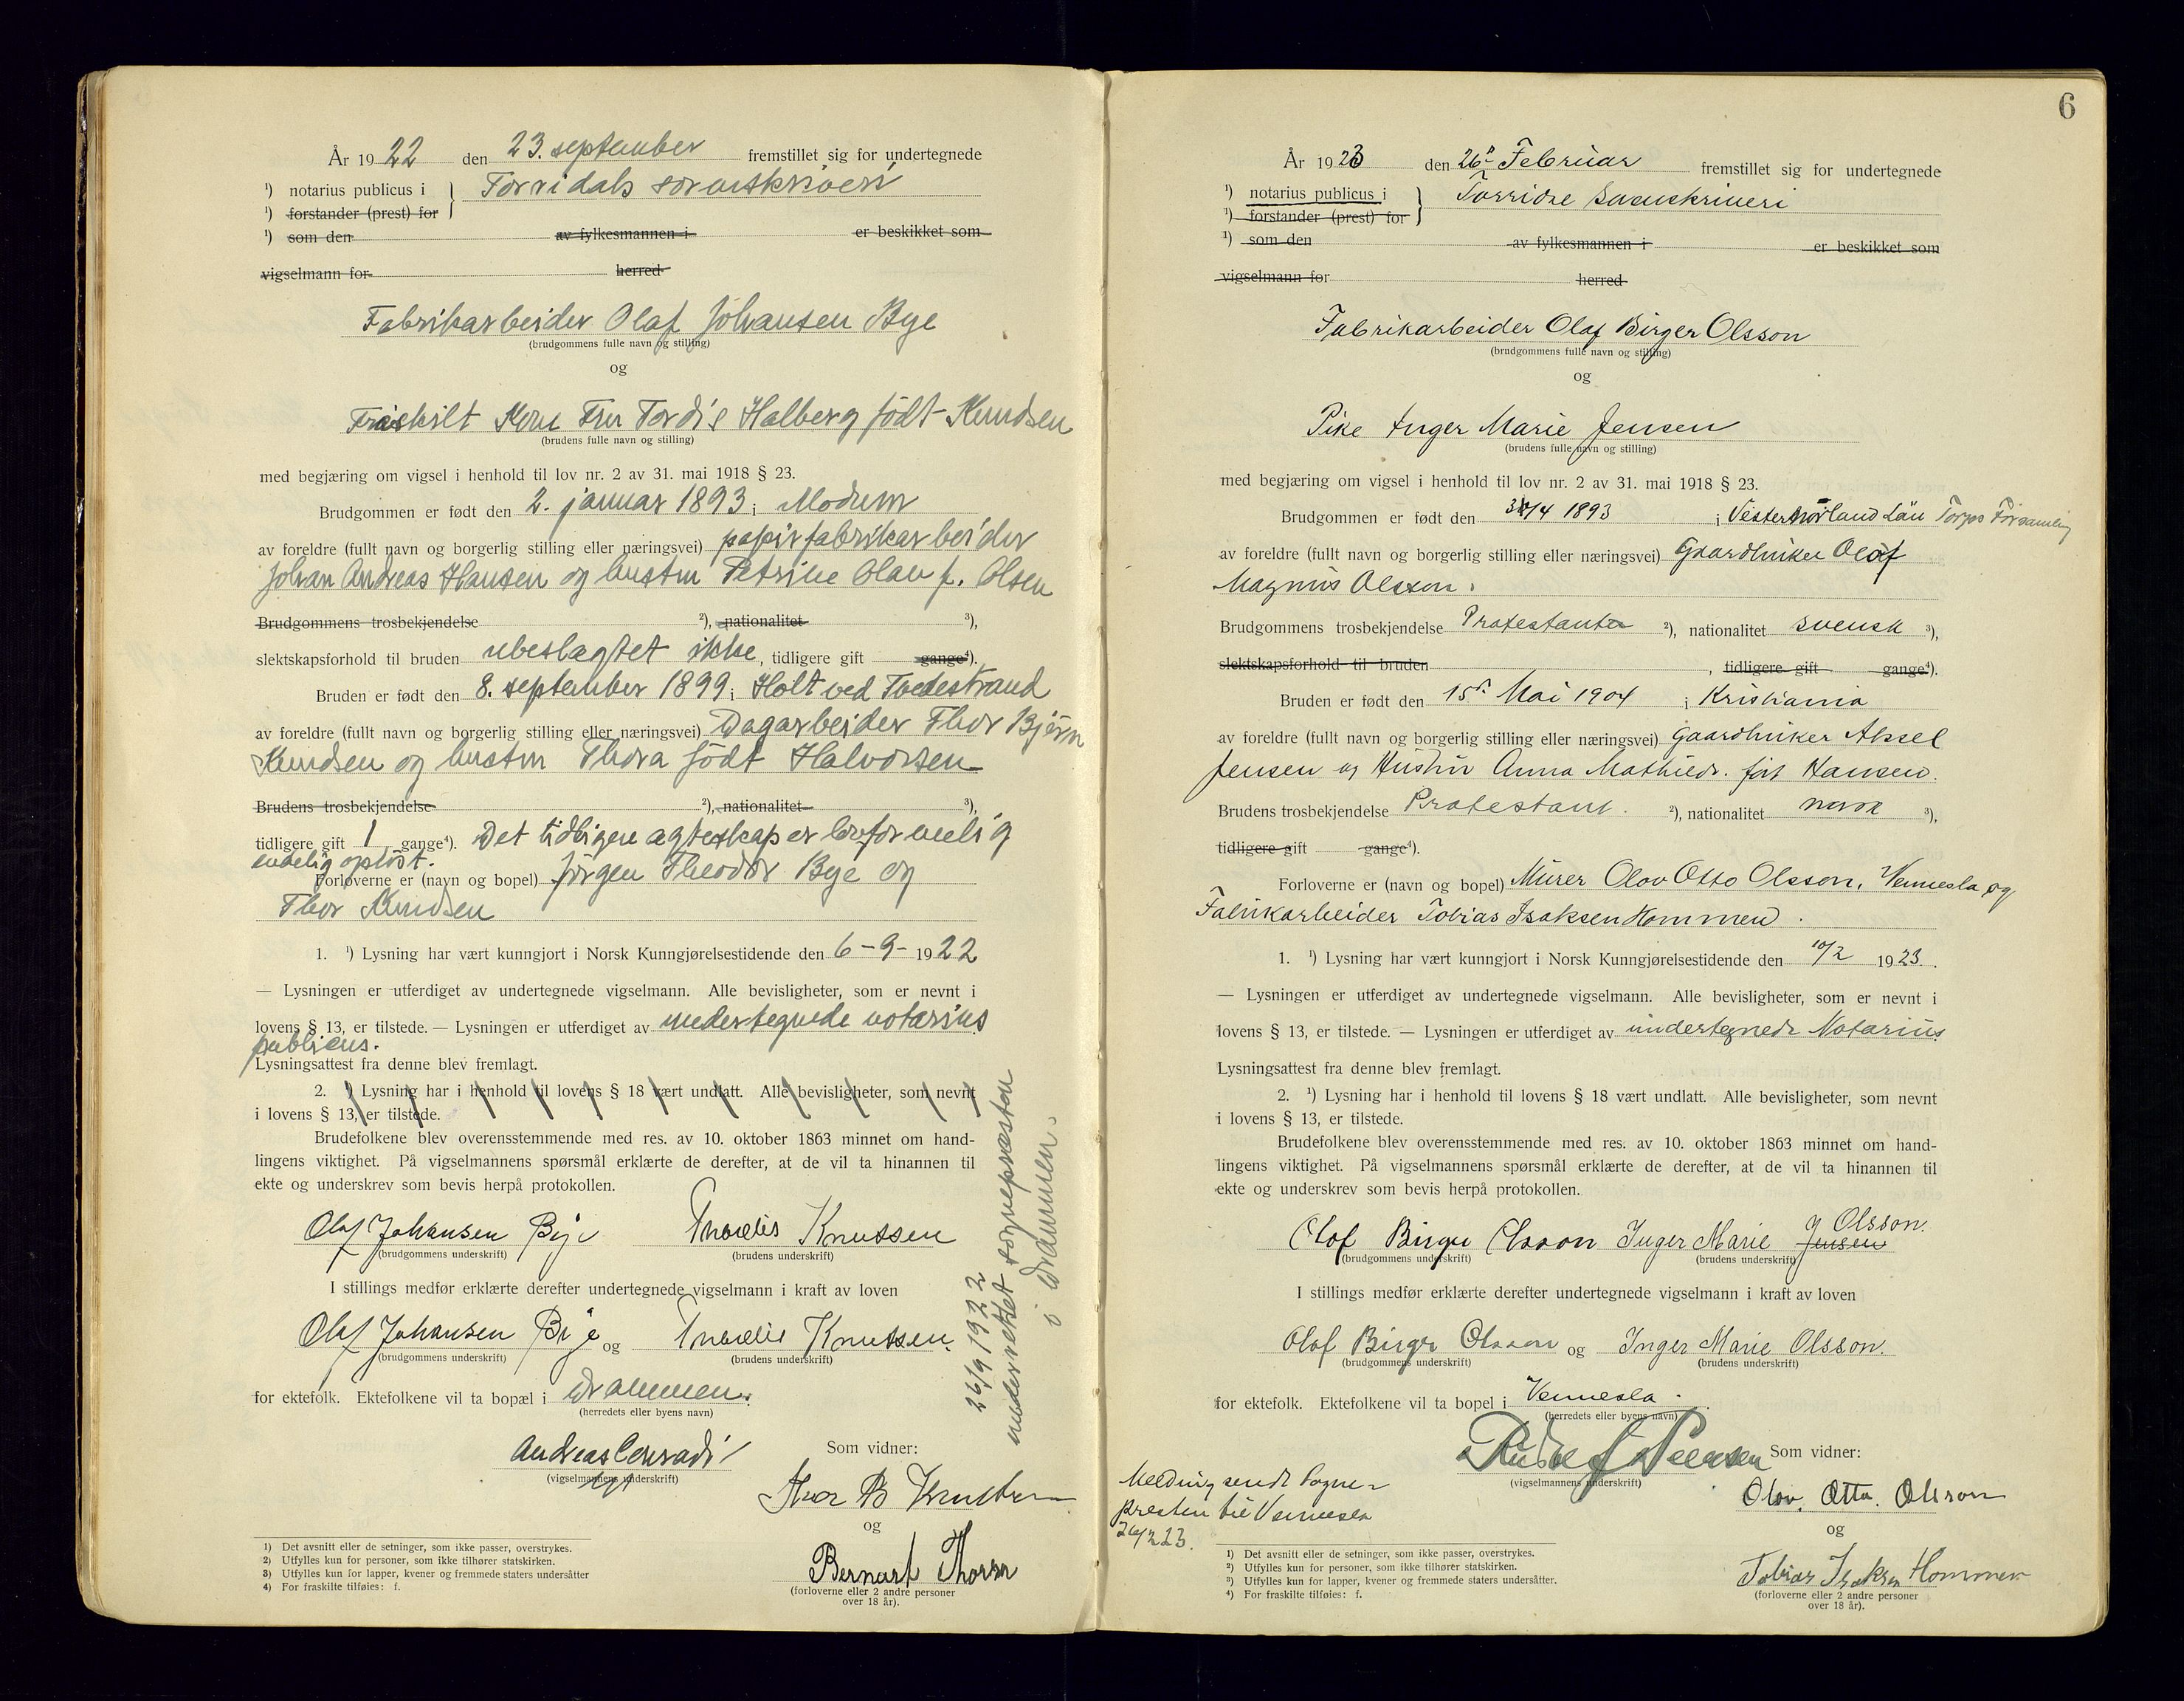 År 1922 den 23. september fremstillet sig for undertegnede
¹) notarius publicus i } Torridals sorenskriveri
¹) forstander (prest) for
¹) som den av fylkesmannen i er beskikket som
vigselmann for herred
Fabrikarbeider Olaf Johansen Bye
(brudgommens fulle navn og stilling)
og
Fraskilt Kone Fru Tordis Halberg født Knudsen
(brudens fulle navn og stilling)
med begjæring om vigsel i henhold til lov nr. 2 av 31. mai 1918 § 23.
Brudgommen er født den 2. januar 1893 i Modum
av foreldre (fullt navn og borgerlig stilling eller næringsvei) papirfabrikarbeider
Johan Andreas Hansen og hustru Petrine Olau f. Olsen
Brudgommens trosbekjendelse ²), nationalitet ³),
slektskapsforhold til bruden ubeslagtet ikke, tidligere gift gange⁴).
Bruden er født den 8. september 1899 i Holt ved Tvedestrand
av foreldre (fullt navn og borgerlig stilling eller næringsvei) Dagarbeider Thor Bjørn
Knudsen og hustru Thora født Halvorsen
Brudens trosbekjendelse ²), nationalitet ³),
tidligere gift 1 gange⁴). Det tidligere ægteskap er lovformelig
endelig opløst.
Forloverne er (navn og bopel) Jørgen Theodor Bye og
Thor Knudsen
1. ¹) Lysning har vært kunngjort i Norsk Kunngjørelsestidende den 6-9- 1922
— Lysningen er utferdiget av undertegnede vigselmann. Alle bevisligheter, som er nevnt i
lovens § 13, er tilstede. — Lysningen er utferdiget av undertegnede notarius
publicus.
Lysningsattest fra denne blev fremlagt.
2. ¹) Lysning har i henhold til lovens § 18 vært undlatt. Alle bevisligheter, som nevnt
i lovens § 13, er tilstede.
Brudefolkene blev overensstemmende med res. av 10. oktober 1863 minnet om hand-
lingens viktighet. På vigselmannens spørsmål erklærte de derefter, at de vil ta hinannen til
ekte og underskrev som bevis herpå protokollen.
Olaf Johansen Bye Thordis Knutsen
(brudgommens underskrift) (brudens underskrift)
I stillings medfør erklærte derefter undertegnede vigselmann i kraft av loven
Olaf Johansen Bye og Thordis Knutsen.
(brudgommens underskrift) (brudens underskrift)
for ektefolk. Ektefolkene vil ta bopæl i Drammen.
(herredets eller byens navn)
Andreas Conradi
(vigselmannens underskrift)
Som vidner:
Thor B Knutsen
og
Bernart Thorsen
(forloverne eller 2 andre personer
over 18 år).
26/9 1922
underrettet sogneprœsten
i Drammen.
1) Det avsnitt eller de setninger, som ikke passer, overstrykes.
2) Utfylles kun for personer, som ikke tilhører statskirken.
3) Utfylles kun for lapper, kvener og fremmede staters undersåtter
4) For fraskilte tilføies: f.
6
År 1923 den 26de Februar fremstillet sig for undertegnede
¹) notarius publicus i } Torridal sorenskriveri
¹) forstander (prest) for
¹) som den av fylkesmannen i er beskikket som
vigselmann for herred
Fabrikarbeider Olaf Birger Olsson
(brudgommens fulle navn og stilling)
og
Pike Inger Marie Jensen
(brudens fulle navn og stilling)
med begjæring om vigsel i henhold til lov nr. 2 av 31. mai 1918 § 23.
Brudgommen er født den /4 1893 i Vesternorland Län Torps Församling
av foreldre (fullt navn og borgerlig stilling eller næringsvei) Gaardbruker Olof
Magnus Olsson.
Brudgommens trosbekjendelse Protestant ²), nationalitet svensk ³),
slektskapsforhold til bruden , tidligere gift gange⁴).
Bruden er født den 15de Mai 1904 i Kristiania
av foreldre (fullt navn og borgerlig stilling eller næringsvei) Gaardbruker Aksel
Jensen og Hustru Anna Mathilde. født Hansen.
Brudens trosbekjendelse Protestant. ²), nationalitet norsk ³),
tidligere gift gange⁴).
Forloverne er (navn og bopel) Murer Olov Otto Olsson, Vennesla og
Fabrikarbeider Tobias Isaksen Hommen.
1. ¹) Lysning har vært kunngjort i Norsk Kunngjørelsestidende den 10/2 1923.
— Lysningen er utferdiget av undertegnede vigselmann. Alle bevisligheter, som er nevnt i
lovens § 13, er tilstede. — Lysningen er utferdiget av undertegnede Notarius
Lysningsattest fra denne blev fremlagt.
2. ¹) Lysning har i henhold til lovens § 18 vært undlatt. Alle bevisligheter, som nevnt
i lovens § 13, er tilstede.
Brudefolkene blev overensstemmende med res. av 10. oktober 1863 minnet om hand-
lingens viktighet. På vigselmannens spørsmål erklærte de derefter, at de vil ta hinannen til
ekte og underskrev som bevis herpå protokollen.
Olof Birger Olsson Inger Marie Jensen J Olsson.
(brudgommens underskrift) (brudens underskrift)
I stillings medfør erklærte derefter undertegnede vigselmann i kraft av loven
Olof Birger Olsson og Inger Marie Olsson.
(brudgommens underskrift) (brudens underskrift)
for ektefolk. Ektefolkene vil ta bopel i Vennesla.
(herredets eller byens navn)
(vigselmannens underskrift)
Som vidner:
Olov. Otto. Olsson
og
Tobias Isaksen Hommen
(forloverne eller 2 andre personer
over 18 år).
Melding sendt Sogne-
presten til Vennesla
26/2 23.
1) Det avsnitt eller de setninger, som ikke passer, overstrykes.
2) Utfylles kun for personer, som ikke tilhører statskirken.
3) Utfylles kun for lapper, kvener og fremmede staters undersåtter.
4) For fraskilte tilføies: f.